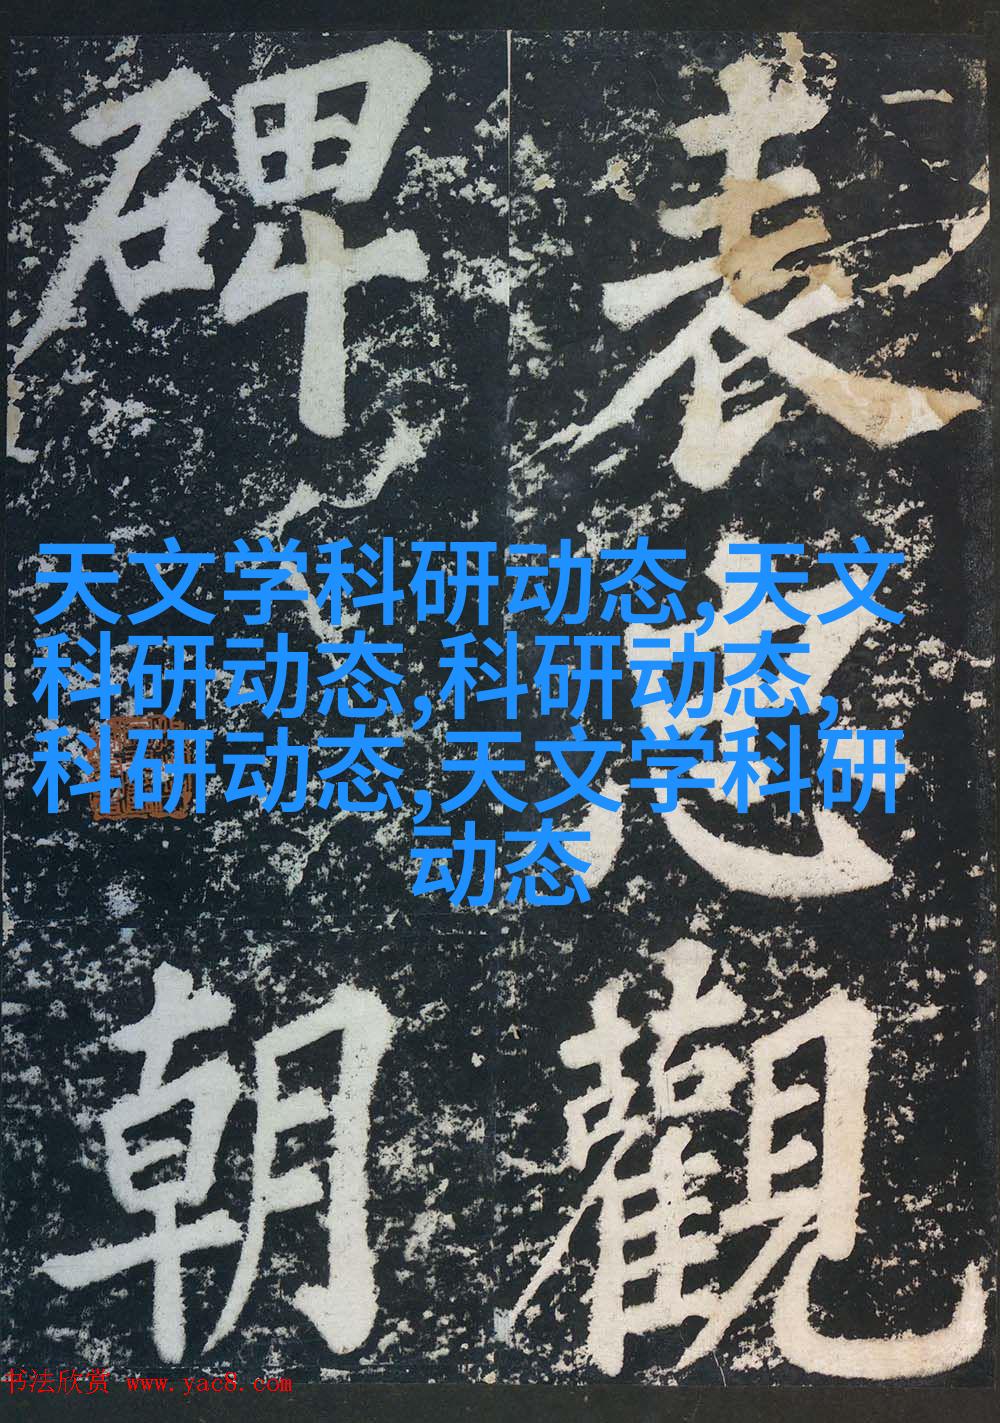 表忠觀
碑
朝
天文学科研动态,天文
科研动态,科研动态,
科研动态,天文学科研
动态
书法欣赏 www.yac8.com